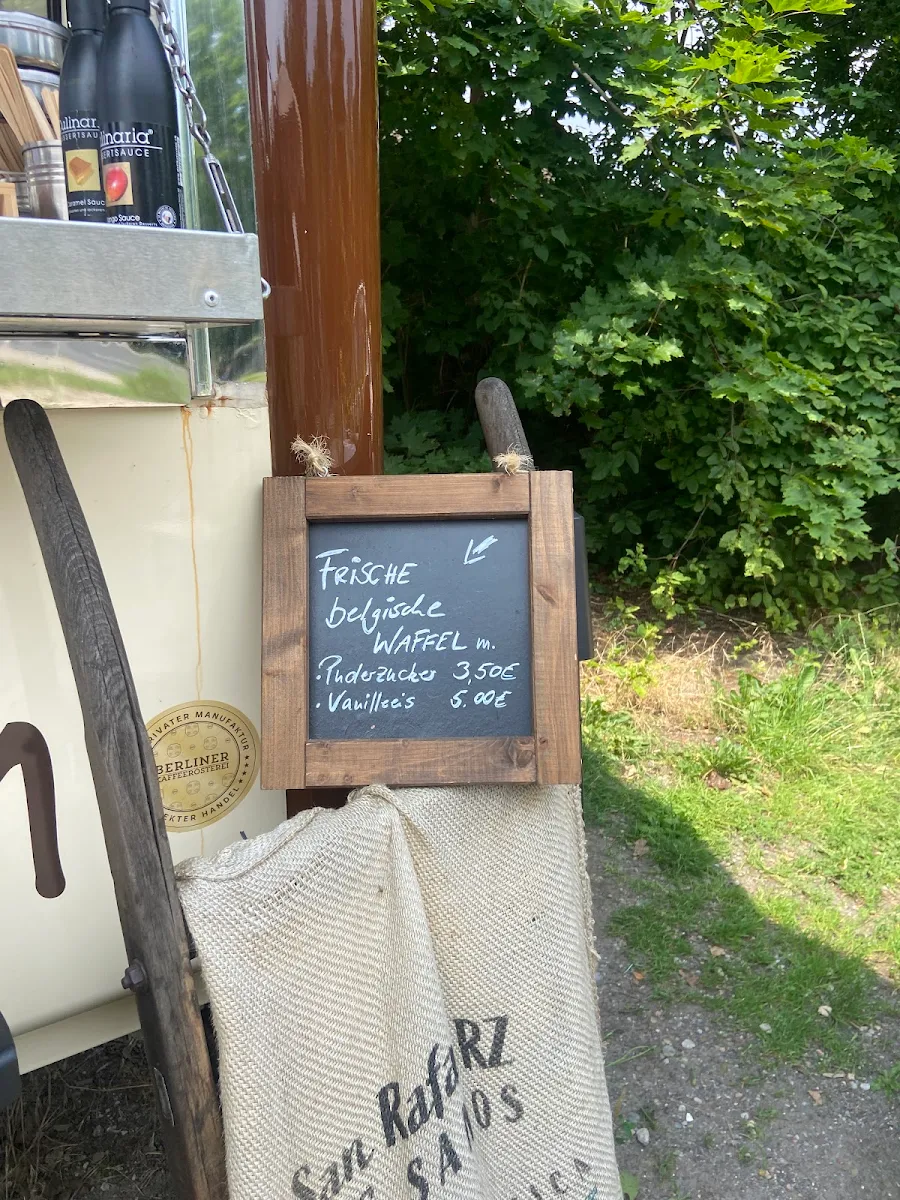 ulinar
ZERTSAUCE
linaria®
ERTSAUCE
ramel Sauce
ngo Sauce
FRiSCHE
belgische
WAFFEL m.
• Puderzucker 3,50€
• Vanilleeis 5.00€
RIVATER MANUFAKTUR
BERLINER
KAFFEERÖSTEREI
EKTER HANDEL
San Rafa RZ
SANIOS